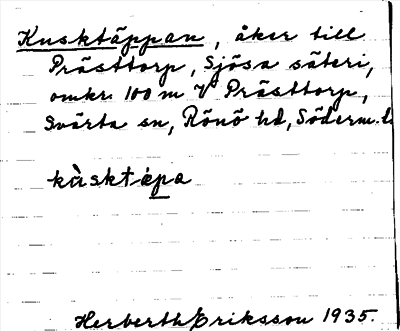 Kusktäppan, åker till
Prästtorp, Sjösa säteri,
omkr. 100 m V Prästtorp,
Svärta sn, Rönö hd, Söderm. l
kùsktápa
Herberth Eriksson 1935.